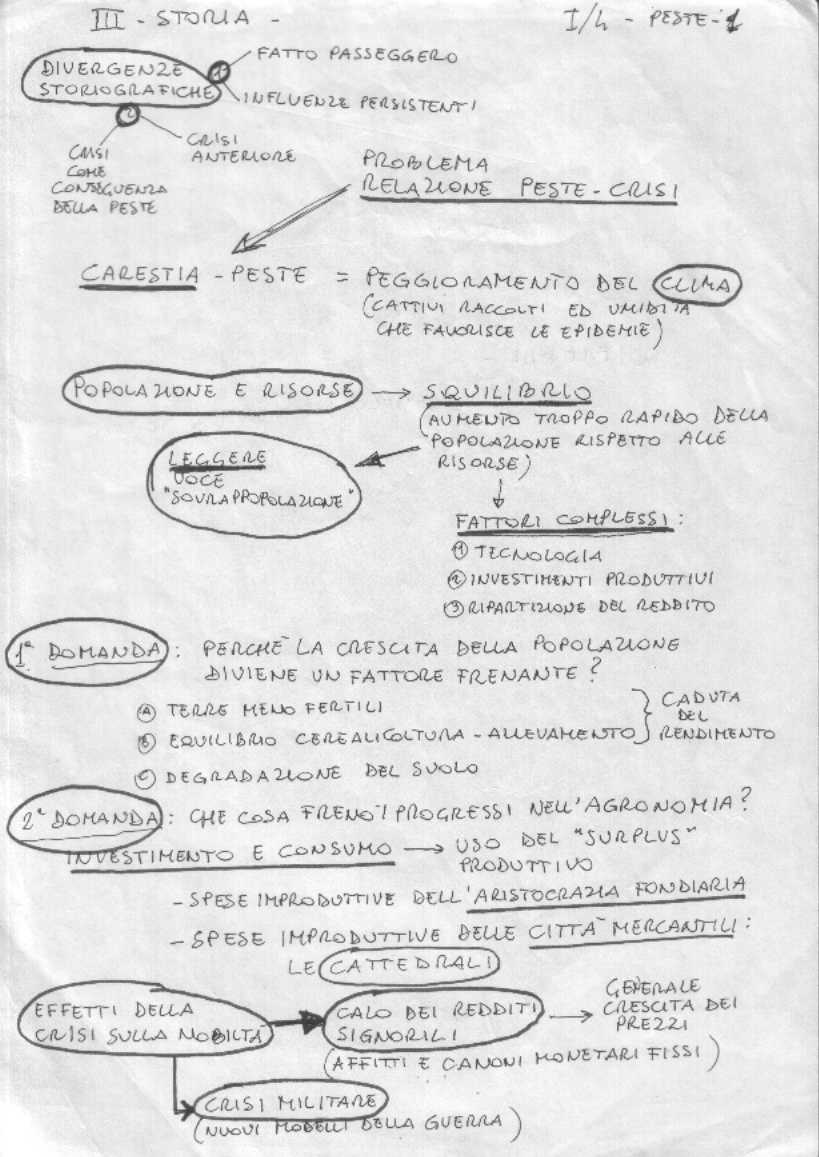 III - STORIA -
I/4 - PESTE - 1
DIVERGENZE
STORIOGRAFICHE
1
FATTO PASSEGGERO
INFLUENZE PERSISTENTI
2
CRISI
COME
CONSEGUENZA
DELLA PESTE
CRISI
ANTERIORE
PROBLEMA
RELAZIONE PESTE-CRISI
CARESTIA - PESTE = PEGGIORAMENTO DEL CLIMA
(CATTIVI RACCOLTI ED UMIDITÀ
CHE FAVORISCE LE EPIDEMIE)
POPOLAZIONE E RISORSE → SQUILIBRIO
(AUMENTO TROPPO RAPIDO DELLA
POPOLAZIONE RISPETTO ALLE
RISORSE)
LEGGERE
VOCE
"SOVRAPPOPOLAZIONE"
FATTORI COMPLESSI:
1 TECNOLOGIA
2 INVESTIMENTI PRODUTTIVI
3 RIPARTIZIONE DEL REDDITO
1ª DOMANDA: PERCHÈ LA CRESCITA DELLA POPOLAZIONE
DIVIENE UN FATTORE FRENANTE?
A TERRE MENO FERTILI
B EQUILIBRIO CEREALICOLTURA - ALLEVAMENTO
CADUTA
DEL
RENDIMENTO
C DEGRADAZIONE DEL SUOLO
2ª DOMANDA: CHE COSA FRENO' I PROGRESSI NELL'AGRONOMIA?
INVESTIMENTO E CONSUMO → USO DEL "SURPLUS"
PRODUTTIVO
- SPESE IMPRODUTTIVE DELL'ARISTOCRAZIA FONDIARIA
- SPESE IMPRODUTTIVE DELLE CITTÀ MERCANTILI:
LE CATTEDRALI
EFFETTI DELLA
CRISI SULLA NOBILTÀ
CALO DEI REDDITI
SIGNORILI
(AFFITTI E CANONI MONETARI FISSI)
GENERALE
CRESCITA DEI
PREZZI
CRISI MILITARE
(NUOVI MODELLI DELLA GUERRA)